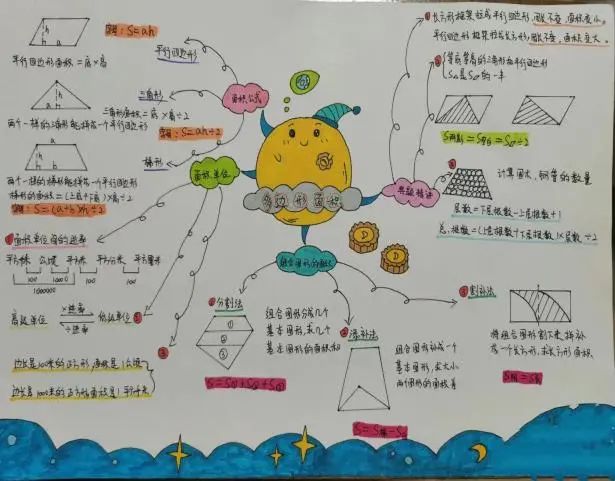 多边形面积
面积公式
平行四边形
字母:S=ah
平行四边形面积=底×高
三角形
三角形面积=底×高÷2
两个一样的三角形能拼成一个平行四边形
字母:S=ah÷2
梯形
两个一样的梯形能拼成一个平行四边形
梯形的面积=(上底+下底)×高÷2
字母:S=(a+b)×h÷2
面积单位
①面积单位间的进率
平方千米 公顷 平方米 平方分米 平方厘米
100 100 100
1000000
②
高级单位 ×进率 ÷进率 低级单位
③
边长是100米的正方形,面积是1公顷
边长是1000米的正方形面积是1平方千米
组合图形的面积
①分割法
① ② ③
组合图形分成几个
基本图形,求几个
基本图形的面积和
②添补法
组合图形补成一个
基本图形,求大小
两个图形的面积差
③割补法
将组合图形割下来,拼补
成一个长方形,求长方形面积
典题精讲
①长方形框架拉成平行四边形,周长不变,面积变小。
平行四边形框架拉成长方形,周长不变,面积变大。
②等底等高的三角形和平行四边形
③
计算圆木、钢管的数量
层数=下层根数-上层根数+1
总根数=(上层根数+下层根数)×层数÷2